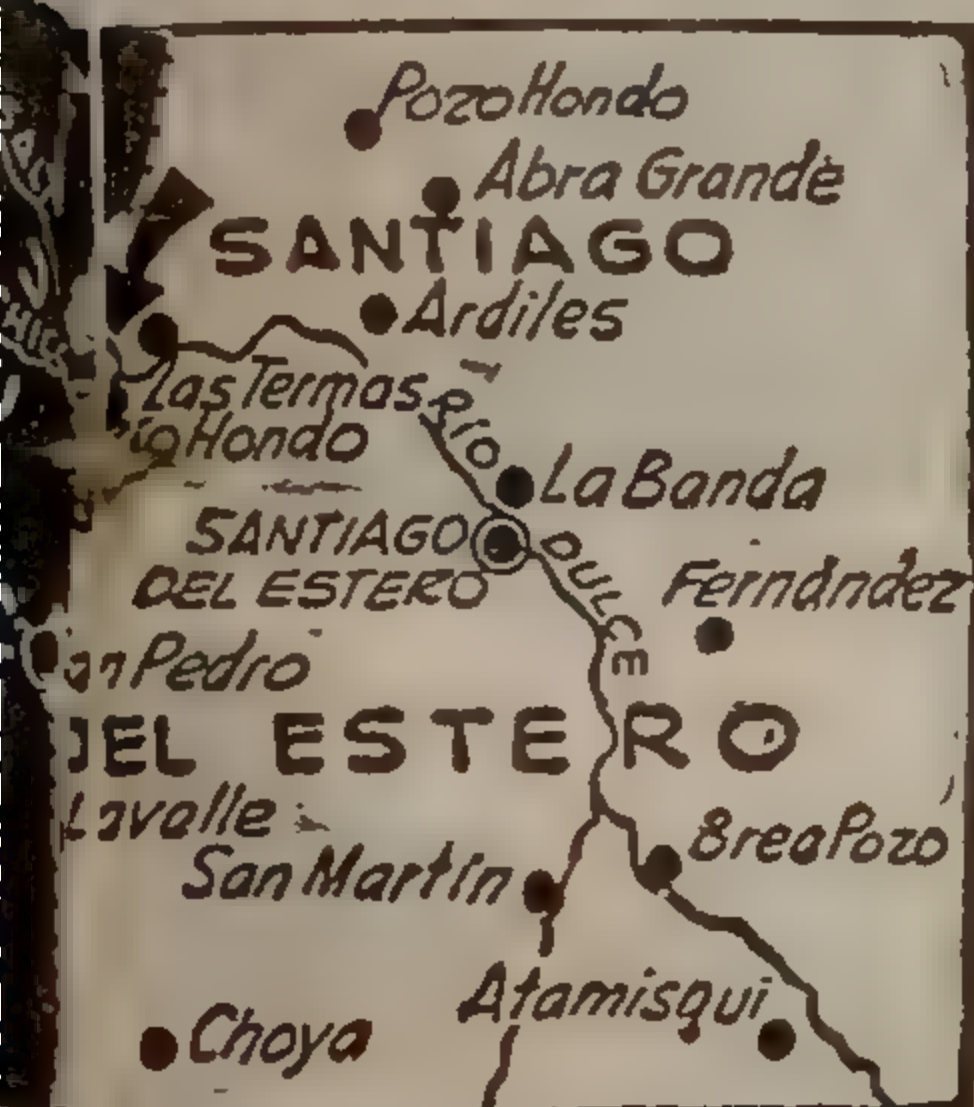 Pozo Hondo
Abra Grande
SANTIAGO
Ardiles
Las Termas
Hondo
RIO
La Banda
SANTIAGO
DEL ESTERO
DULCE
Fernández
Pedro
ESTERO
Lavalle
San Martín
Brea Pozo
Atamisqui
Choya